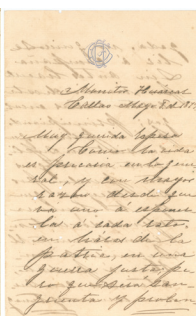 Monitor Huáscar
Callao Mayo 8 de 18
Muy querida esposa
Como la vida
es precaria en lo gene
ral, y con mayor
razon desde que
va uno a exponer
la a cada rato,
en aras de la
patria, en una
guerra justa, pe
ro que será san
grienta y prolon